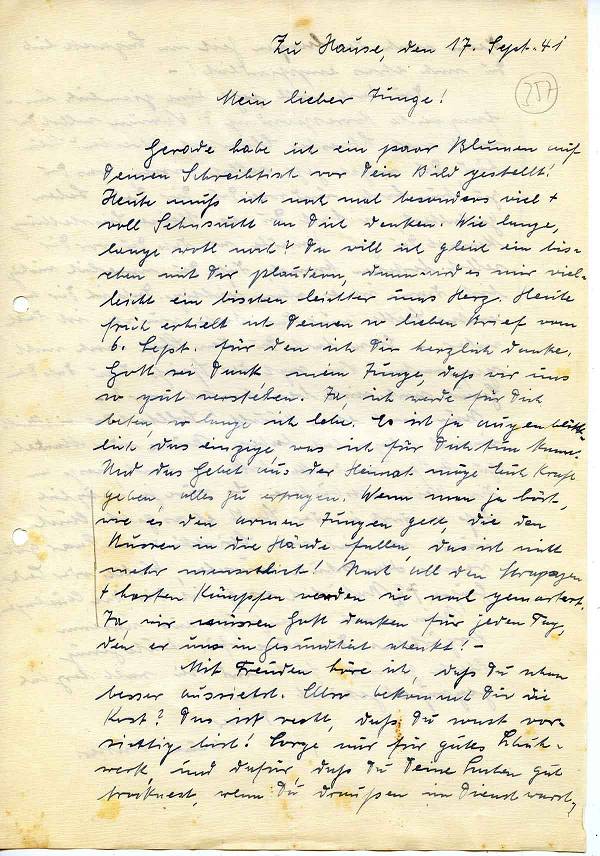 Zu Hause, den 17. Sept. 41
257
Mein lieber Junge!
Gerade habe ich ein paar Blumen auf
Deinen Schreibtisch vor Dein Bild gestellt!
Heute muß ich noch mal besonders viel +
voll Sehnsucht an Dich denken. Wie lange,
lange wohl noch? Da will ich gleich ein bis-
chen mit Dir plaudern, dann wird es mir viel-
leicht ein bischen leichter ums Herz. Heute
früh erhielt ich Deinen so lieben Brief vom
6. Sept. für den ich Dir herzlich danke.
Gott sei Dank mein Junge, daß wir uns
so gut verstehen. Ja, ich werde für Dich
beten, so lange ich lebe. Es ist ja augenblick-
lich das einzige, was ich für Dich tun kann.
Und das Gebet aus der Heimat möge Euch Kraft
geben, alles zu ertragen. Wenn man ja hört,
wie es den armen Jungen geht, die den
Russen in die Hände fallen, das ist nicht
mehr menschlich! Nach all den Strapazen
+ harten Kämpfen werden sie noch gemartert.
Ja, wir müssen Gott danken für jeden Tag,
den er uns in Gesundheit schenkt! –
Mit Freuden höre ich, daß Du schon
besser aussiehst. Also bekommt Dir die
Kost? Das ist recht, daß Du sonst vor-
sichtig bist! Sorge nur für gutes Schuh-
werk, und dafür, daß Du Deine Sachen gut
trocknest, wenn Du draußen im Dienst warst,